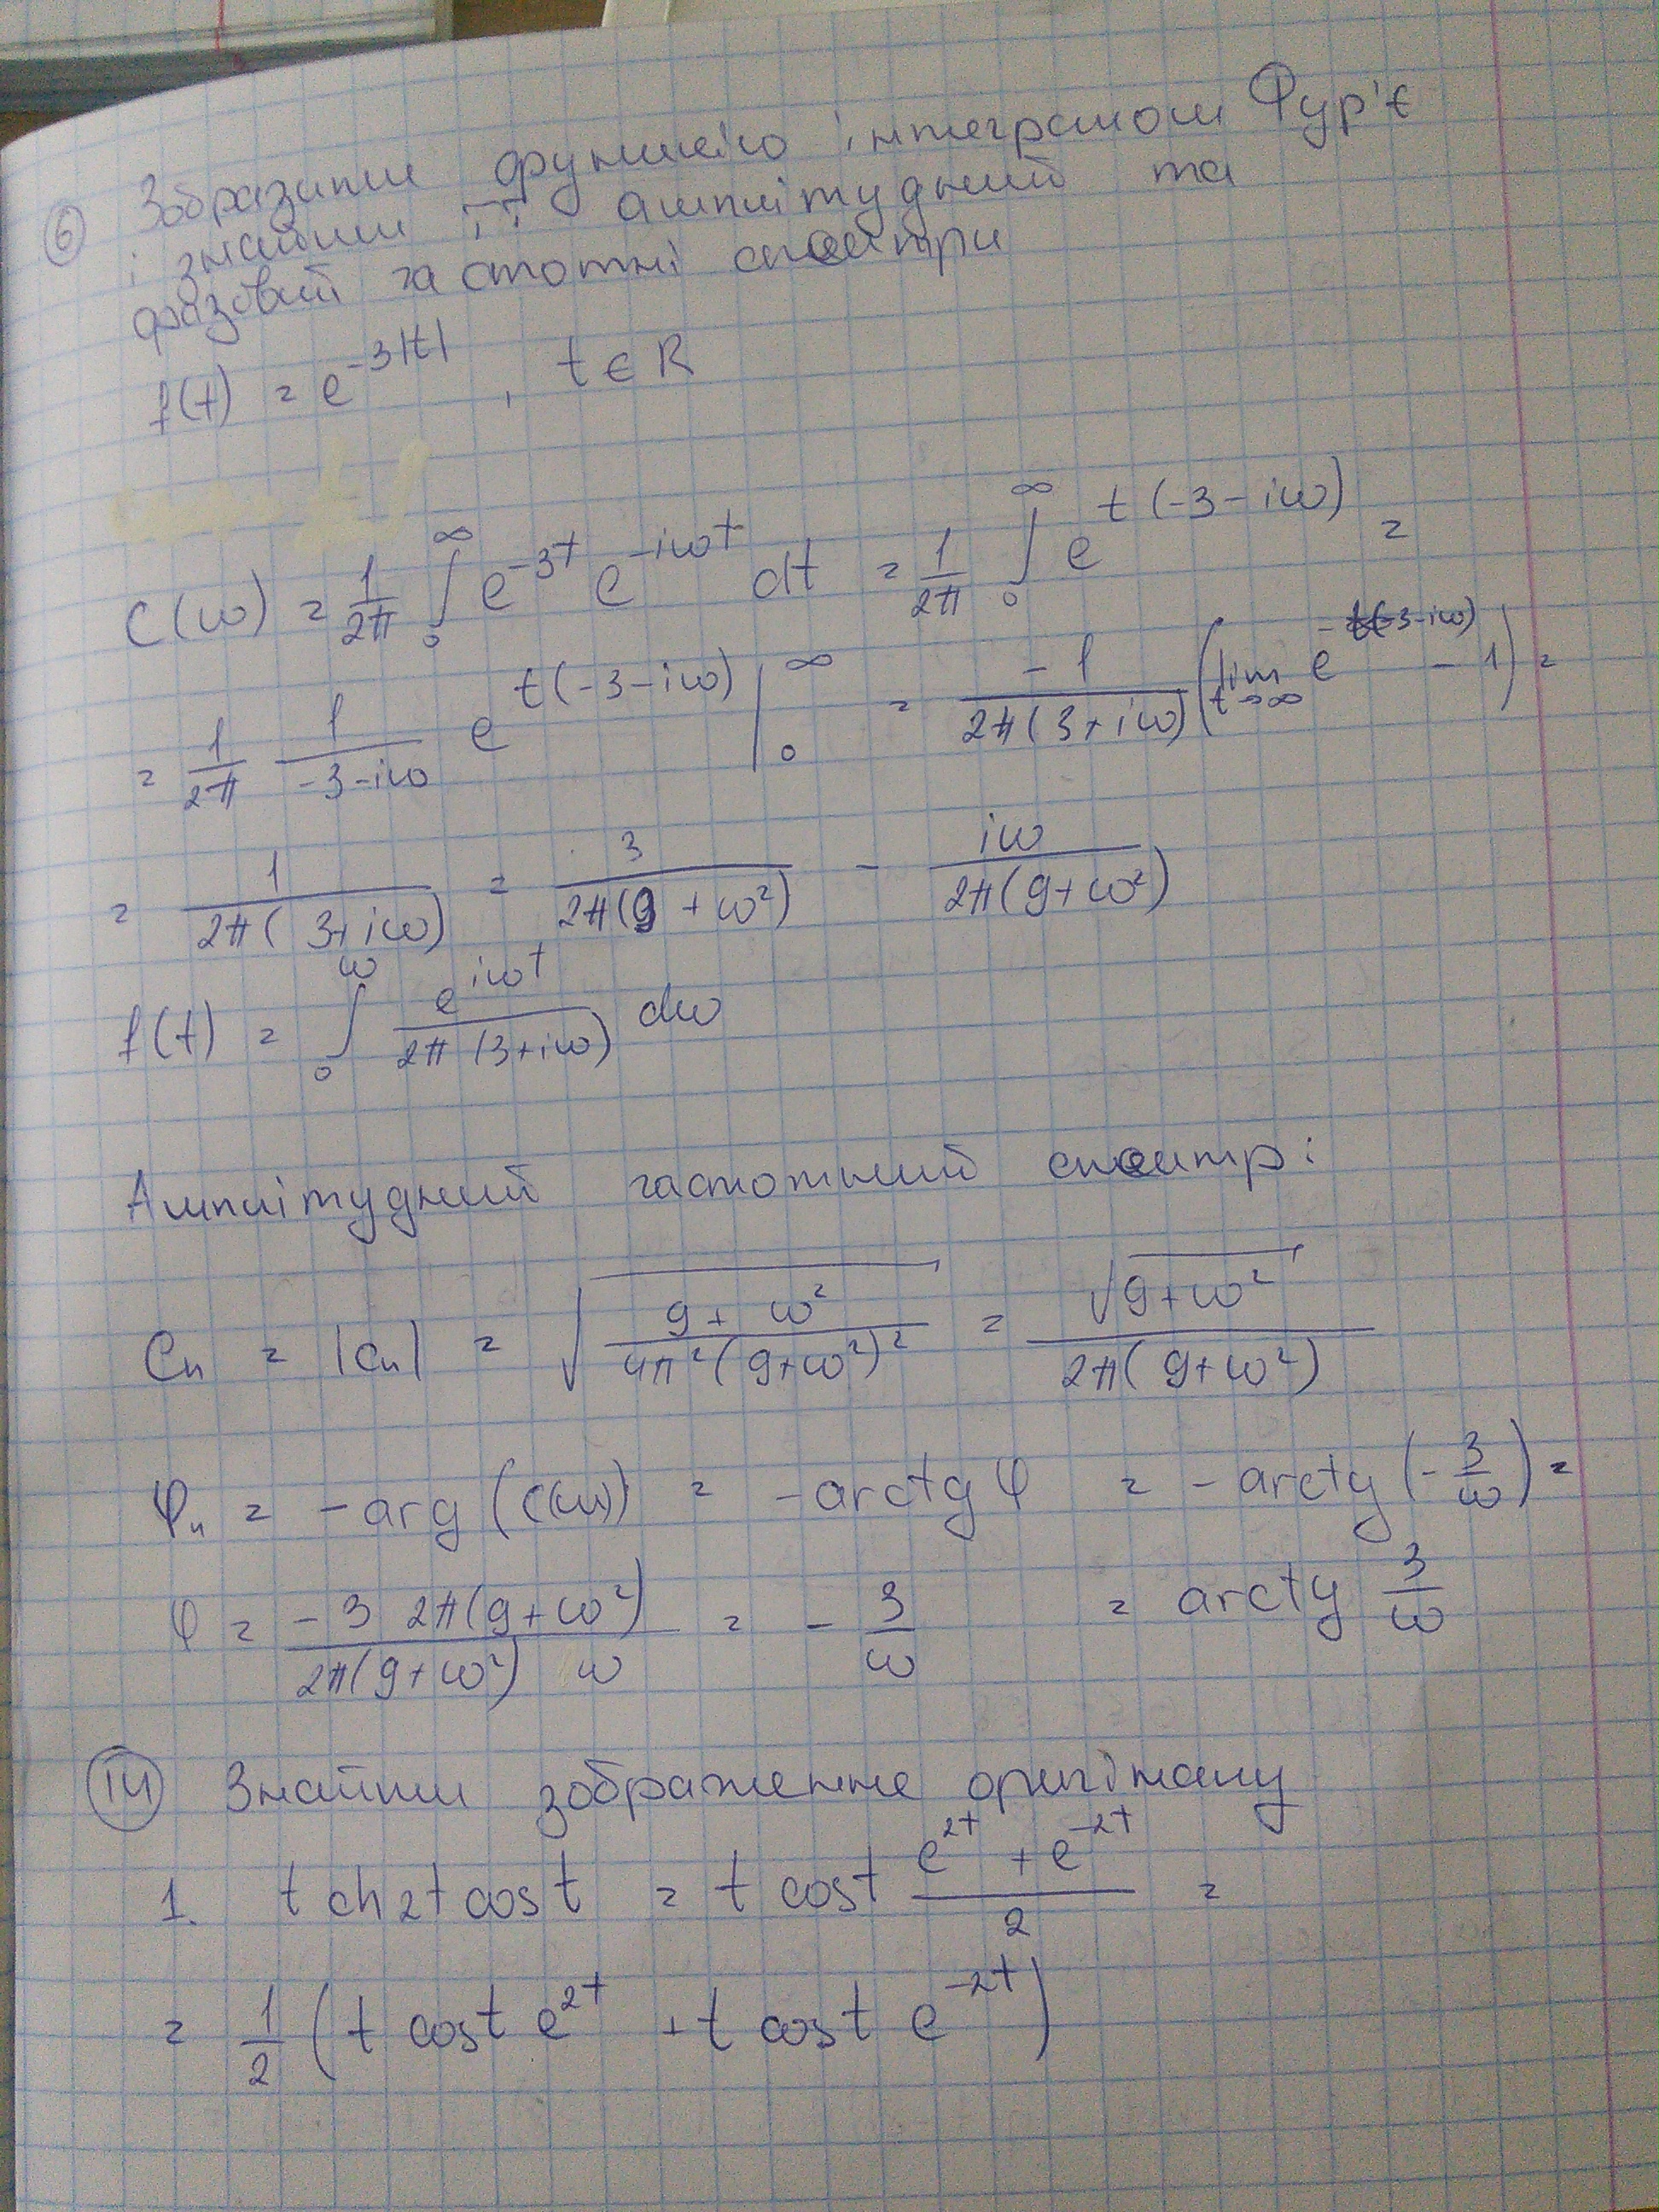 6 Зобразити функцію інтегралом Фур'є
і знайти її амплітудний та
фазовий частотні спектри
f(t) = e^{-3|t|}, t ∈ R
C(ω) = 1/2π ∫_0^∞ e^{-3t} e^{-iωt} dt = 1/2π ∫_0^∞ e^{t(-3-iω)} =
= 1/2π 1/(-3-iω) e^{t(-3-iω)} |_0^∞ = -1/(2π(3+iω)) (lim_{t→∞} e^{-(3-iω)} - 1) =
= 1/(2π(3+iω)) = 3/(2π(9+ω²)) - iω/(2π(9+ω²))
f(t) = ∫_0^ω e^{iωt}/(2π(3+iω)) dω
Амплітудний частотний спектр:
Cn = |cn| = √((9+ω²)/(4π²(9+ω²)²)) = √(9+ω²)/(2π(9+ω²))
φn = -arg(C(ω)) = -arctg φ = -arctg(-3/ω) =
φ = (-3 2π(9+ω²))/(2π(9+ω²) ω) = -3/ω = arctg 3/ω
IV Знайти зображення оригіналу
1. t ch2t cost = t cost (e^{2t} + e^{-2t})/2 =
= 1/2 (t cost e^{2t} + t cost e^{-2t})